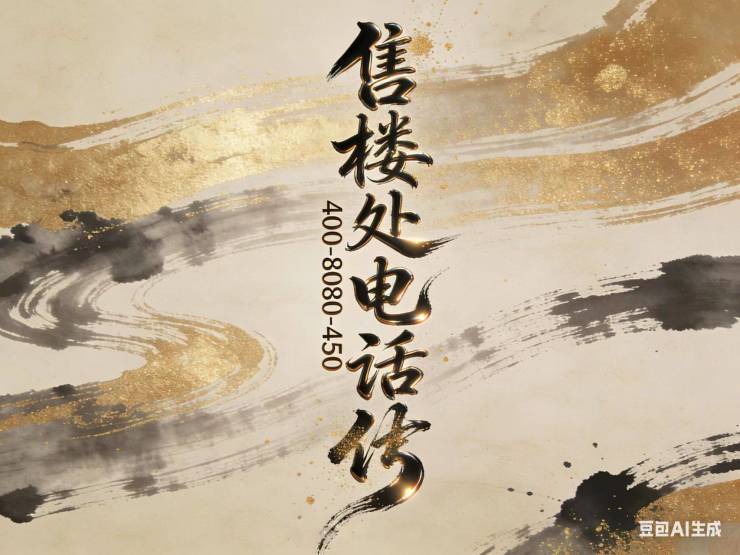 售楼处电话传
400-8080-450
豆包AI生成